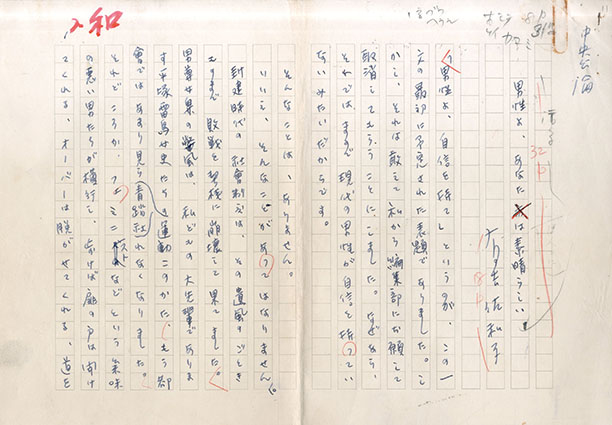 中央公論
男性よ、あなたは素晴らしい
有吉佐和子
「男性よ、自信を持て」というのが、この一
文の最初に予定された表題でありました。し
かし、それは敢えて私から編集部にお願して
取消してもらうことに、しました。なぜなら、
それでは、まるで現代の男性が自信を持ってい
ないみたいだからです。
そんなことは、ありません。
いいえ、そんなことがあってはなりません。
封建時代の社会制度は、その遺風のごとき
ものまで、敗戦を契機に崩壊して果てました。
男尊女卑の弊風は、私どもの大先輩でありま
す平塚雷鳥女史たち青踏社の運動のかたも、もう都
会ではあまり見られなくなりました。
それどころか、フェミニストなどという気味
の悪い男たちが横行し、歩けば扉の戸は開け
てくれる、オーバーは脱がせてくれる、道を